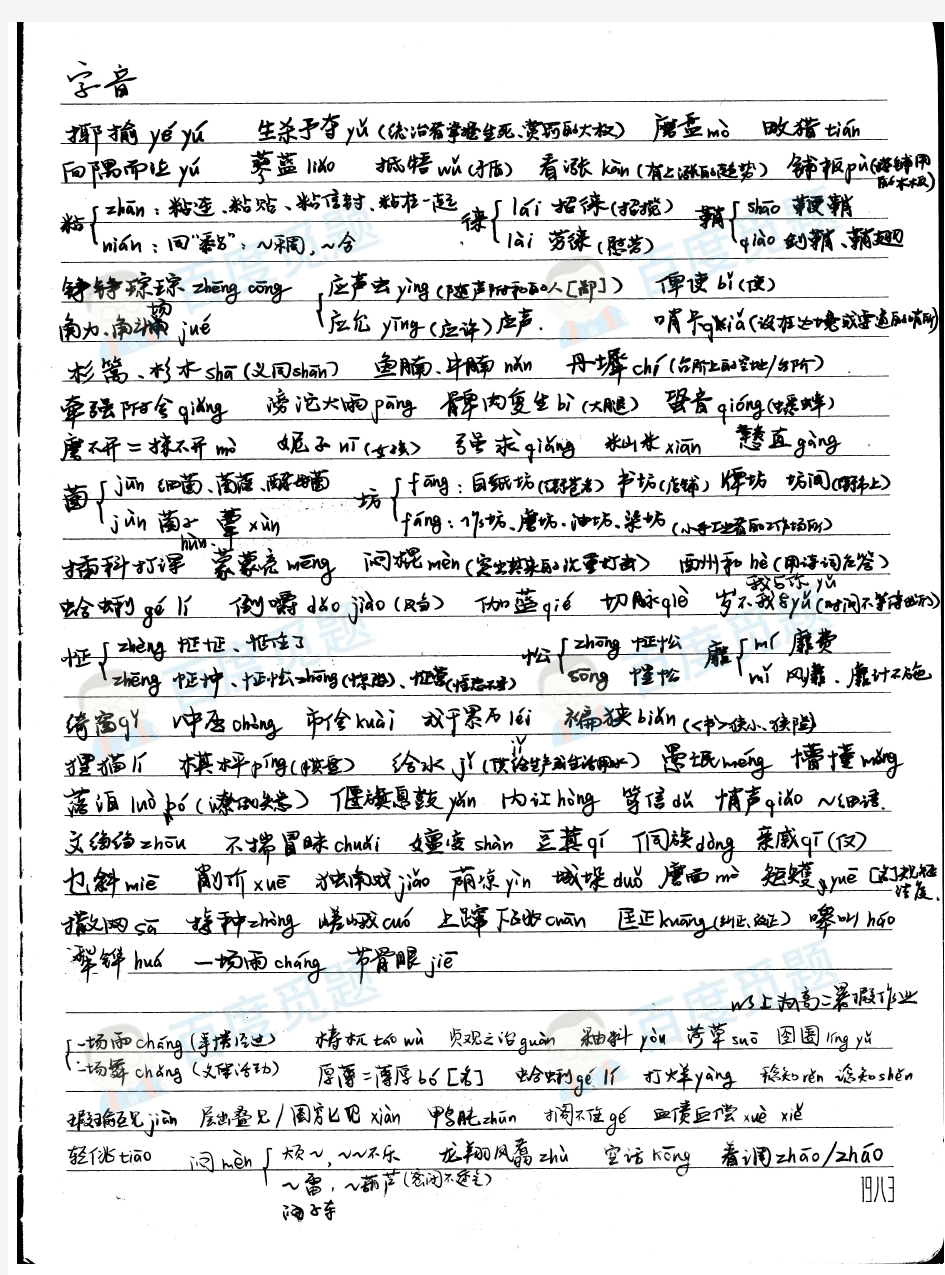 字音
揶揄 yé yú 生杀予夺 yǔ (统治者掌握生死、赏罚的大权) 磨盘 mò 畋猎 tián
向隅而泣 yú 蓼蓝 liǎo 抵牾 wǔ (矛盾) 看涨 kàn (有上涨的趋势) 铺板 pù (搭铺用的木板)
粘 { zhān：粘连、粘贴、粘信封、粘在一起 徕 { lái 招徕 (招揽) 鞘 { shāo 鞭鞘
nián：同“黏”：~稠，~合 lài 劳徕 (慰劳) qiào 剑鞘、鞘翅
铮铮琮琮 zhēng cóng { 应声虫 yìng (随声附和的人[鄙]) 俾使 bǐ (使)
角力、角斗场 jué 应允 yīng (应许) 应声. 哨卡 qiǎ (设在边境或要道的哨所)
杉篙、杉木 shā (义同shān) 鱼腩、牛腩 nǎn 丹墀 chí (台阶上的空地/台阶)
牵强附会 qiǎng 滂沱大雨 pāng 髀肉复生 bì (大腿) 跫音 qióng
磨不开=抹不开 mò 妮子 nī (女孩) 强求 qiǎng 氽 xiān 戆直 gàng
菌 { jūn 细菌、菌落、酵母菌 坊 { fāng：白纸坊 书坊 (店铺) 牌坊 坊间
jùn 菌子 蕈 xùn fáng：作坊、磨坊、油坊、染坊 (小手工业者的工作场所)
插科打诨 hùn 蒙蒙亮 mēng 闷棍 mèn (突出其来的沉重打击) 酉州和 hè (用诗词应答)
蛤蜊 gé lí 倒嚼 dǎo jiào 伽蓝 qié 切脉 qiè 岁不我与 yǔ (时间不等待我们)
怔 { zhèng 怔怔、怔住了 忪 { zhōng 怔忪 靡 { mí 靡费
zhēng 怔忡、怔忪 zhōng (惊恐)、怔营 sōng 惺忪 mǐ 风靡、靡计不施
绮窗 qǐ 冲压 chòng 市侩 kuài 戎干累历 léi 褊狭 biǎn (<书>狭小、狭隘)
狸猫 lí 棋枰 píng (棋盘) 给水 jǐ (供给生产或生活用水) 愚氓 méng 懵懂 měng
落泊 luò bó (潦倒失意) 偃旗息鼓 yǎn 内讧 hòng 笃信 dǔ 悄声 qiǎo ~细语.
文绉绉 zhōu 不揣冒昧 chuǎi 嬗变 shàn 豆萁 qí 侗族 dòng 亲戚 qī (仅)
乜斜 miē 削价 xuē 独角戏 jiǎo 荫凉 yìn 城垛 duǒ 磨面 mò 矩矱 yuē
撒网 sā 接种 zhòng 嵯峨 cuó 上蹿下跳 cuān 匡正 kuāng (纠正、改正) 嗥叫 háo
犁铧 huá 一场雨 cháng 节骨眼 jiē
以上为高二暑假作业
{ 一场雨 cháng (事情经过) 梼杌 táo wù 贞观之治 guàn 釉料 yòu 莎草 suō 囹圄 líng yǔ
一场舞 chǎng (文体活动) 厚薄=薄厚 bó [名] 蛤蜊 gé lí 打烊 yàng 稔知 rěn 谂知 shěn
瑕瑜互见 jiàn 层出叠见/图穷匕见 xiàn 鸭肫 zhūn 搁不住 gé 血债血偿 xuè xiě
轻佻 tiāo 闷 mèn { 烦~，~~不乐 龙翔凤翥 zhù 空话 kōng 着调 zháo/zhāo
~雷，~葫芦 (密闭不透气)
闷子车
19八3